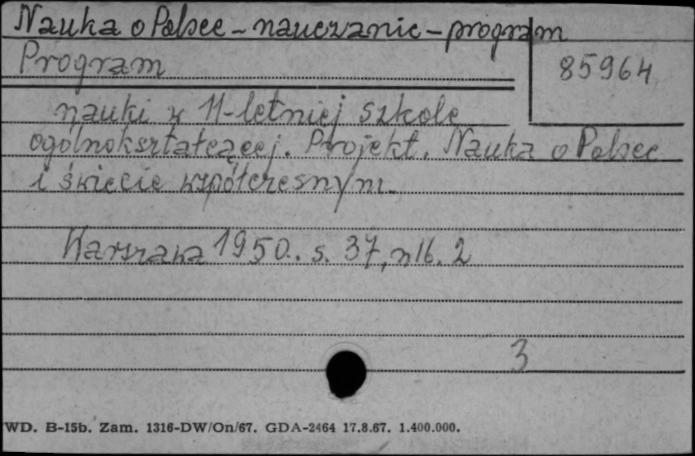 Nauka o Polsce - nauczanie - program
Program
85964
nauki w 11-letniej szkole
ogólnokształcącej. Projekt. Nauka o Polsce
i świecie współczesnym.
Warszawa 1950. s. 37, nlb. 2
3
WD. B-15b. Zam. 1316-DW/On/67. GDA-2464 17.8.67. 1.400.000.